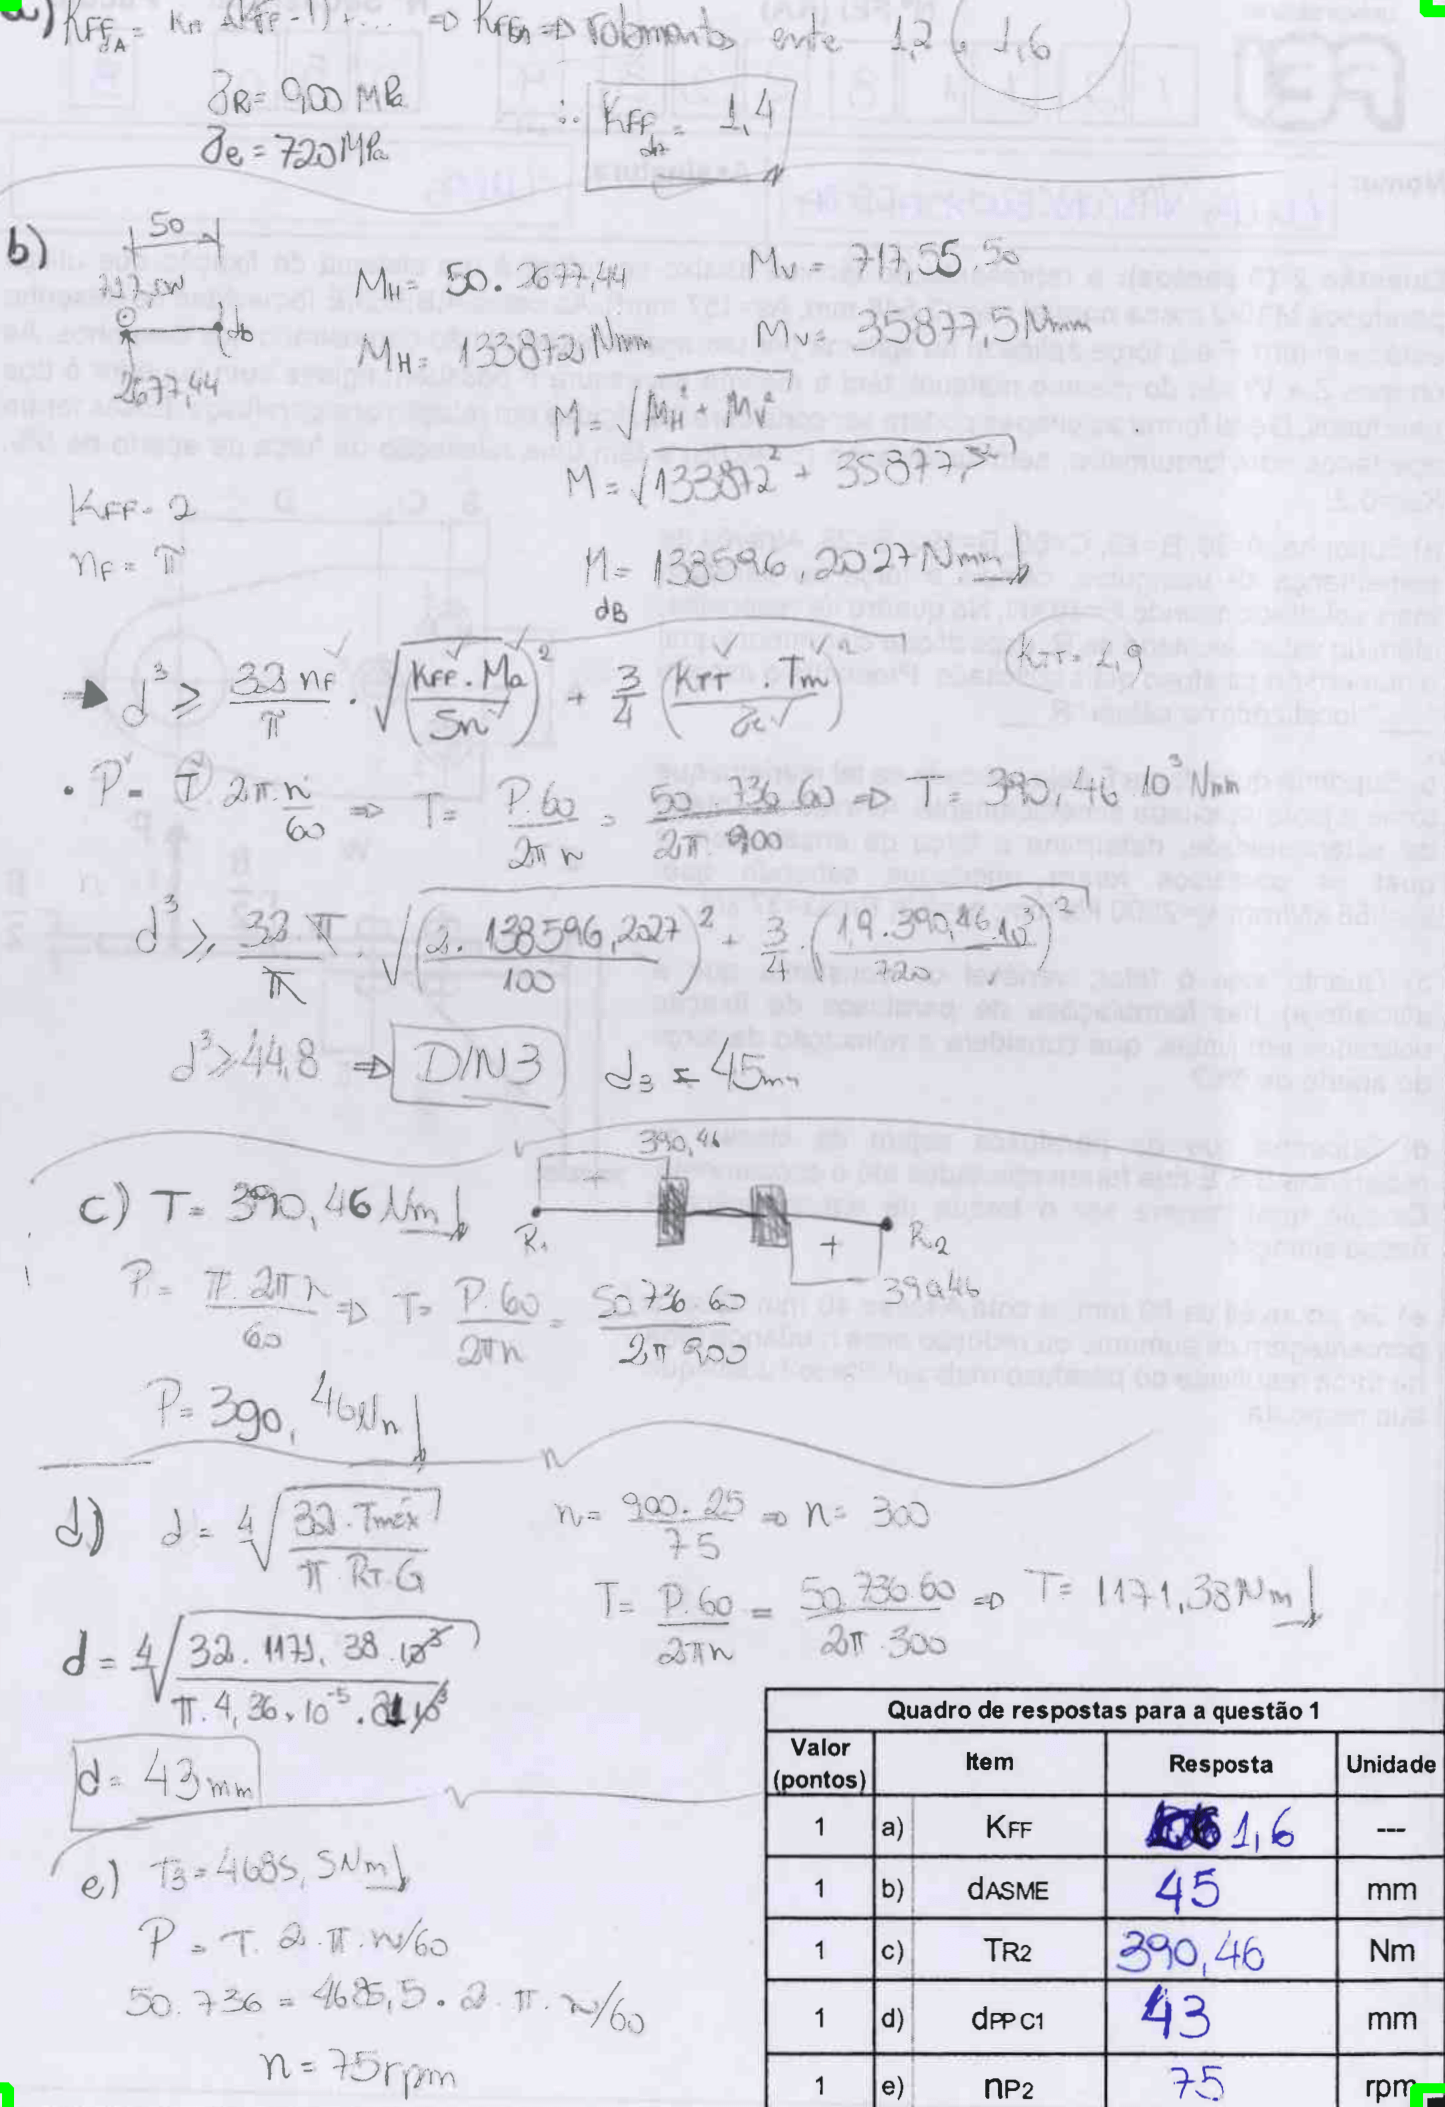 a) KFF dA = KA (KFF - 1) + ... => KFF dA => rolamentos entre 1,2 e 1,6
σR = 900 MPa
∴ KFF dA = 1,4
σe = 720 MPa
b)
50
717,55
db
2677,44
MH = 50 . 2677,44
MH = 133872 Nmm
MV = 717,55.50
MV = 35877,5 Nmm
M = √(MH² + MV²)
M = √(133872² + 35877,5²)
M dB = 138596,2027 Nmm
KFF = 2
nF = π
KTT = 1,9
=> d³ ≥ 32 nF / π . √((KFF . Ma / Sn)² + 3/4 (KTT . Tm / σe)²)
• P = T . 2π . n / 60 => T = P . 60 / 2π n = 50 . 736 . 60 / 2π . 900 => T = 390,46 10³ Nmm
d³ ≥ 32 . π / π . √((2 . 138596,2027 / 100)² + 3/4 . (1,9 . 390,46 . 10³ / 720)²)
d³ ≥ 44,8 => DIN 3 d3 = 45mm
c) T = 390,46 Nm
390,46
+
R1
+
R2
390,46
P = T . 2π n / 60 => T = P . 60 / 2π n = 50 736 60 / 2π 900
P = 390,46 Nm
d) d = ⁴√(32 . Tmáx / π . RT . G)
n = 900 . 25 / 75 => n = 300
T = P . 60 / 2π n = 50 . 736 60 / 2π . 300 => T = 1171,38 Nm
d = ⁴√(32 . 1171,38 . 10³ / π . 4,36 . 10⁻⁵ . 81 10³)
d = 43 mm
e) T3 = 4685,5 Nm
P = T . 2 . π . n/60
50 . 736 = 4685,5 . 2 . π . n/60
n = 75 rpm
Quadro de respostas para a questão 1
Valor (pontos) Item Resposta Unidade
1 a) KFF 1,6 ---
1 b) dASME 45 mm
1 c) TR2 390,46 Nm
1 d) dPP C1 43 mm
1 e) nP2 75 rpm